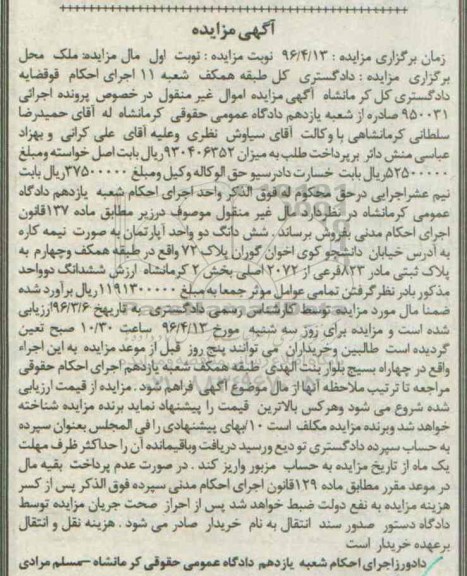 آگهی مزایده
زمان برگزاری مزایده : ۹۶/۴/۱۳ نوبت مزایده : نوبت اول مال مزایده: ملک محل
برگزاری مزایده : دادگستری کل طبقه همکف شعبه ۱۱ اجرای احکام قوقضایه
دادگستری کل کرمانشاه آگهی مزایده اموال غیر منقول در خصوص پرونده اجرائی
۹۵۰۰۳۱ صادره از شعبه یازدهم دادگاه عمومی حقوقی کرمانشاه له آقای حمیدرضا
سلطانی کرمانشاهی با وکالت آقای سیاوش نظری وعلیه آقای علی کرانی و بهزاد
عباسی منش دائر بر پرداخت طلب به میزان ۹۳۰۴۰۶۳۵۲ ریال بابت اصل خواسته و مبلغ
۵۲۵۰۰۰۰۰ ریال بابت خسارت دادرسی و حق الوکاله وکیل و مبلغ ۳۷۵۰۰۰۰۰ ریال بابت
نیم عشر اجرایی در حق محکوم له فوق الذکر واحد اجرای احکام شعبه یازدهم دادگاه
عمومی کرمانشاه در نظر دارد مال غیر منقول موصوف در زیر مطابق ماده ۱۳۷ قانون
اجرای احکام مدنی بفروش برساند . شش دانگ دو واحد آپارتمان به صورت نیمه کاره
به آدرس خیابان دانشجو کوی اخوان گوران پلاک ۷۲ واقع در طبقه همکف وچهارم به
پلاک ثبتی مادر ۸۲۳ فرعی از ۲۰۷۲ اصلی بخش ۲ کرمانشاه ارزش ششدانگ دوواحد
مذکور بادر نظر گرفتن تمامی عوامل موثر جمعا به مبلغ ۱۱۹۱۳۰۰۰۰۰ ریال برآورد شده
ضمنا مال مورد مزایده توسط کارشناس رسمی دادگستری به تاریخ ۹۶/۳/۶ ارزیابی
شده است و مزایده برای روز سه شنبه مورخ ۹۶/۴/۱۳ ساعت ۱۰/۳۰ صبح تعین
گردیده است طالبین وخریداران می توانند پنج روز قبل از موعد مزایده به این اجراء
واقع در چهاراه بسیج بلوار بنت الهدی طبقه همکف شعبه یازدهم اجرای احکام حقوقی
مراجعه تا ترتیب ملاحظه آنها از مال موضوع آگهی فراهم شود . مزایده از قیمت ارزیابی
شده شروع می شود وهرکس بالاترین قیمت را پیشنهاد نماید برنده مزایده شناخته
خواهد شد وبرنده مزایده مکلف است ۱۰/بهای پیشنهادی را فی المجلس بعنوان سپرده
به حساب سپرده دادگستری تو دیع ورسید دریافت وباقیمانده آن را حداکثر ظرف مهلت
یک ماه از تاریخ مزایده به حساب مزبور واریز کند . در صورت عدم پرداخت بقیه مال
در موعد مقرر مطابق ماده ۱۲۹ قانون اجرای احکام مدنی سپرده فوق الذکر پس از کسر
هزینه مزایده به نفع دولت ضبط خواهد شد پس از احراز صحت جریان مزایده توسط
دادگاه دستور صدور سند انتقال به نام خریدار صادر می شود . هزینه نقل و انتقال
برعهده خریدار است
دادورز اجرای احکام شعبه یازدهم دادگاه عمومی حقوقی کرمانشاه - مسلم مرادی